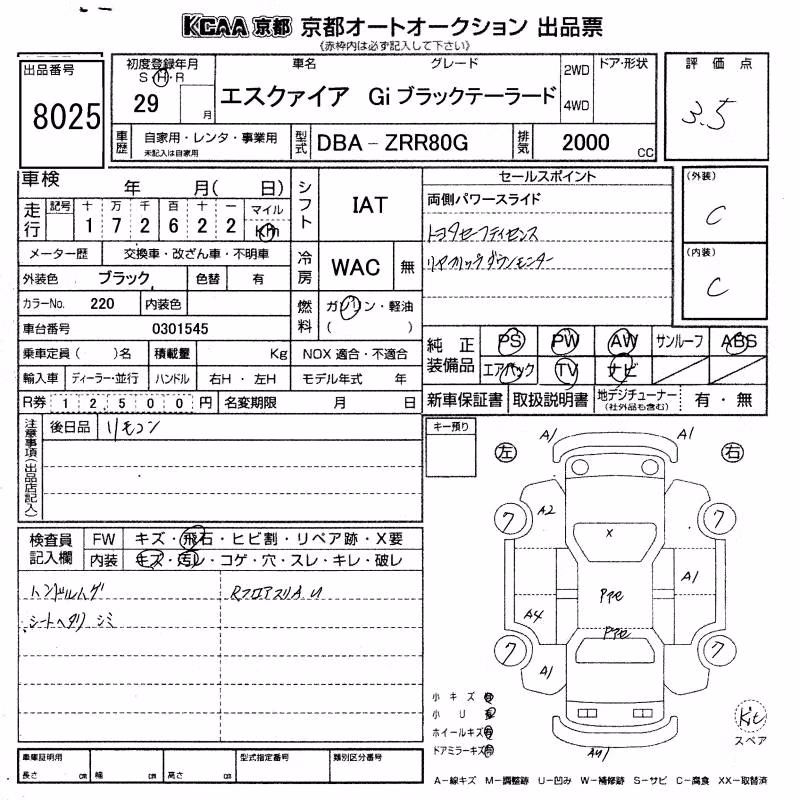 KCAA 京都 京都オートオークション 出品票
《赤枠内は必ず記入して下さい》
出品番号
8025
初度登録年月
S・H・R
29 月
車名 グレード
エスクァイア Gi ブラックテーラード
2WD
4WD
ドア・形状
評価点
3.5
車歴 自家用・レンタ・事業用
未記入は自家用
型式 DBA－ZRR80G
排気 2000 CC
車検 年 月( 日)
走行 記号 十 万 千 百 十 一 マイル
1 7 2 6 2 2 Km
シフト IAT
セールスポイント
両側パワースライド
トヨタセーフティセンス
リヤフリップダウンモニター
(外装)
C
(内装)
C
メーター歴 交換車・改ざん車・不明車
冷房 WAC 無
外装色 ブラック 色替 有
カラーNo. 220 内装色
燃料 ガソリン・軽油
( )
車台番号 0301545
乗車定員( )名 積載量 Kg NOX 適合・不適合
純正装備品 PS PW AW サンルーフ ABS
エアバック TV ナビ
輸入車 ディーラー・並行 ハンドル 右H・左H モデル年式 年
R券 1 2 5 0 0 円 名変期限 月 日
新車保証書 取扱説明書 地デジチューナー 有・無
(社外品も含む)
注意事項(出品店記入)
後日品 リモコン
キー預り
左 右
A1 A1
7 A2 7
X
A1
Pアセ
A4
Pアセ
7 7
A1
検査員記入欄
FW キズ・飛石・ヒビ割・リペア跡・X要
内装 キズ・汚レ・コゲ・穴・スレ・キレ・破レ
ハンドルハゲ RフロアスリA U
シートヘタリ シミ
小キズ 有
小 U 有
ホイールキズ有
ドアミラーキズ有
AU1
Kit
スペア
車庫証明用
長さ cm 幅 cm 高さ cm
型式指定番号 類別区分番号
A－線キズ M－調整跡 U－凹み W－補修跡 S－サビ C－腐食 XX－取替済